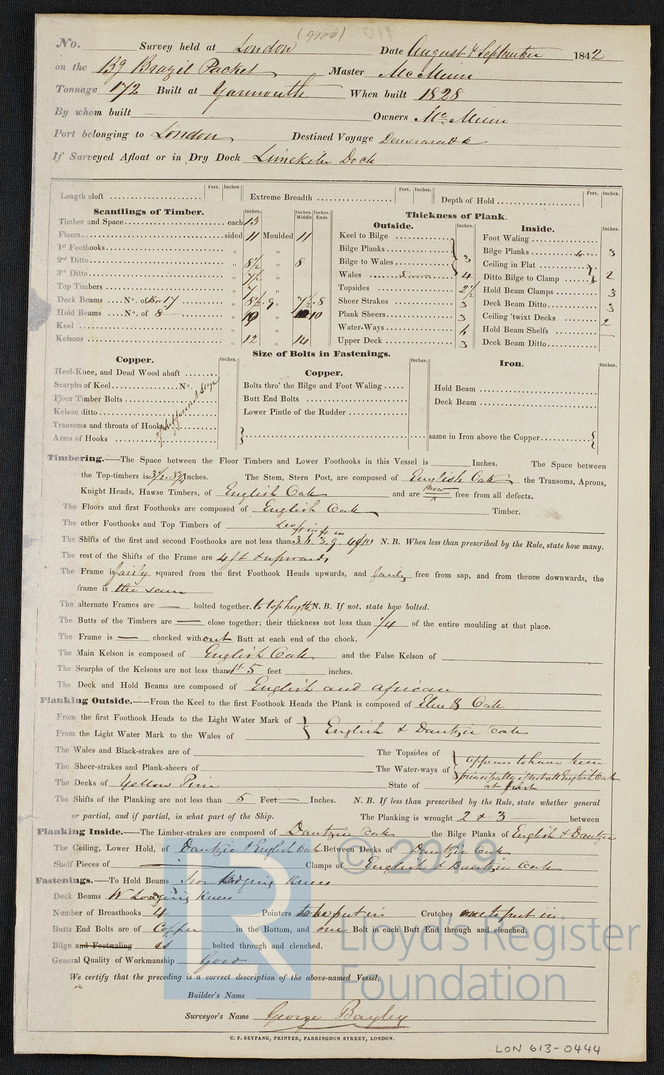 (9100)
No. Survey held at London Date August & September 1842
on the Bg Brazil Packet Master McMinn
Tonnage 172 Built at Yarmouth When built 1828
By whom built Owners Mc Minn
Port belonging to London Destined Voyage Demerara &c
If Surveyed Afloat or in Dry Dock Limekiln Dock
Length aloft Feet. Inches. Extreme Breadth Feet. Inches. Depth of Hold Feet. Inches.
Scantlings of Timber.
Inches. Inches. Middle Inches. Ends
Timber and Space each 13
Floors sided 11 Moulded 11
1st Foothooks
2nd Ditto 8½ 8
3rd Ditto 7½
Top Timbers 7
Deck Beams No. of 17 8½ 9 7½ 8
Hold Beams No. of 8 10 10
Keel
Kelsons 12 14
Thickness of Plank.
Outside. Inches.
Keel to Bilge
Bilge Planks
Bilge to Wales 3
Wales 4
Topsides 2½
Sheer Strakes 3
Plank Sheers 3
Water-Ways 6
Upper Deck 3
Inside. Inches.
Foot Waling
Bilge Planks 3
Ceiling in Flat
Ditto Bilge to Clamp 2
Hold Beam Clamps 3
Deck Beam Ditto 3
Ceiling 'twixt Decks 2
Hold Beam Shelfs
Deck Beam Ditto
Size of Bolts in Fastenings.
Copper. Inches.
Heel-Knee, and Dead Wood abaft
Scarphs of Keel No.
Floor Timber Bolts
Kelson ditto
Transoms and throats of Hooks
Arms of Hooks
Copper. Inches.
Bolts thro' the Bilge and Foot Waling
Butt End Bolts
Lower Pintle of the Rudder
Iron. Inches.
Hold Beam
Deck Beam
same in Iron above the Copper
Timbering.—The Space between the Floor Timbers and Lower Foothooks in this Vessel is Inches. The Space between
the Top-timbers is Inches. The Stem, Stern Post, are composed of English Oak the Transoms, Aprons,
Knight Heads, Hawse Timbers, of English Oak and are free from all defects.
The Floors and first Foothooks are composed of English Oak Timber.
The other Foothooks and Top Timbers of
The Shifts of the first and second Foothooks are not less than N. B. When less than prescribed by the Rule, state how many.
The rest of the Shifts of the Frame are 4 ft & upwards
The Frame is fairly squared from the first Foothook Heads upwards, and fairly free from sap, and from thence downwards, the
frame is the same
The alternate Frames are — bolted together. to top height N. B. If not, state how bolted.
The Butts of the Timbers are — close together; their thickness not less than ¼ of the entire moulding at that place.
The Frame is — chocked without Butt at each end of the chock.
The Main Kelson is composed of English Oak and the False Kelson of
The Scarphs of the Kelsons are not less than 5 feet inches.
The Deck and Hold Beams are composed of English and African
Planking Outside.—From the Keel to the first Foothook Heads the Plank is composed of Elm & Oak
From the first Foothook Heads to the Light Water Mark of
From the Light Water Mark to the Wales of English & Dantzic oak
The Wales and Black-strakes are of The Topsides of appears to have been
The Sheer-strakes and Plank-sheers of The Water-ways of principally English Oak
The Decks of Yellow Pine State of at first
The Shifts of the Planking are not less than 5 Feet — Inches. N. B. If less than prescribed by the Rule, state whether general
or partial, and if partial, in what part of the Ship. The Planking is wrought 2 & 3 between
Planking Inside.—The Limber-strakes are composed of Dantzic oak the Bilge Planks of English & Dantzic
The Ceiling, Lower Hold, of Dantzic & English Oak Between Decks of Dantzic Oak
Shelf Pieces of — Clamps of English & Dantzic Oak
Fastenings.—To Hold Beams Iron Lodging Knees
Deck Beams W Lodging Knees
Number of Breasthooks 4 Pointers to be put in Crutches one to put in
Butts End Bolts are of Copper in the Bottom, and one Bolt in each Butt End through and clenched.
Bilge and Footwaling bolted through and clenched.
General Quality of Workmanship Good
We certify that the preceding is a correct description of the above-named Vessel,
Builder's Name
Surveyor's Name George Bayley
C. F. SEYFANG, PRINTER, FARRINGDON STREET, LONDON.
LON 613-0444
© 2019
Lloyd's Register
Foundation